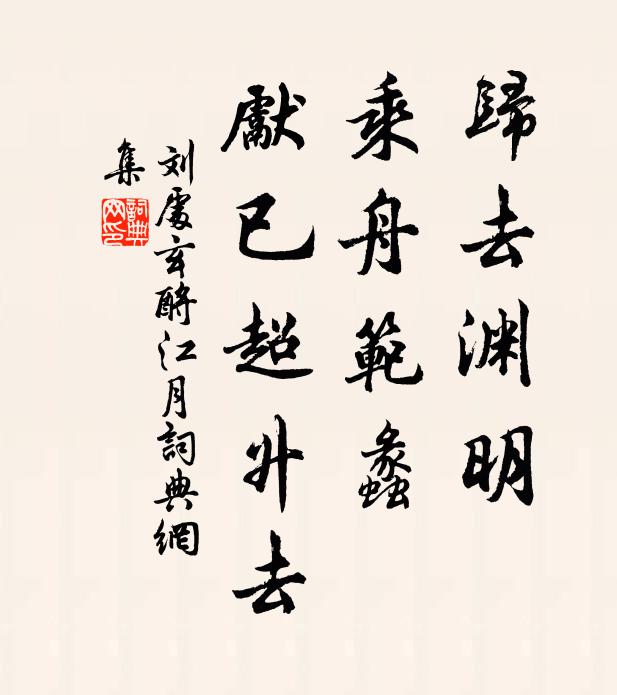 歸去渊明
乘舟範蠡
獻已超升去
刘處玄酹江月詞典網
集
詞典网印